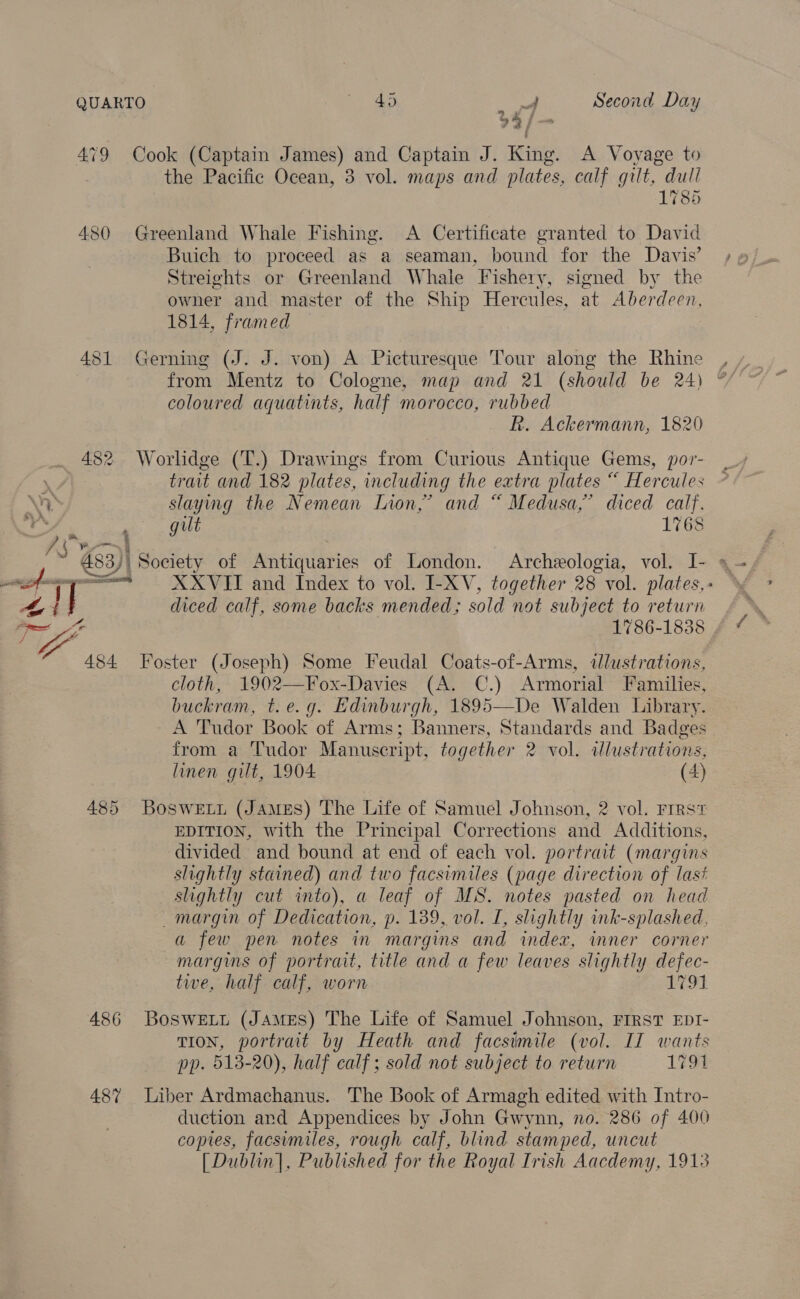 QUARTO 45 Second Day
479 Cook (Captain James) and Captain J. King. A Voyage to
the Pacific Ocean, 3 vol. maps and plates, calf gilt, dull
1785
480 Greenland Whale Fishing. A Certificate granted to David
Buich to proceed as a seaman, bound for the Davis'
Streights or Greenland Whale Fishery, signed by the
owner and master of the Ship Hercules, at Aberdeen,
1814, framed
481 Gerning (J. J. von) A Picturesque Tour along the Rhine
from Mentz to Cologne, map and 21 (should be 24)
coloured aquatints, half morocco, rubbed
R. Ackermann, 1820
482 Worlidge (T.) Drawings from Curious Antique Gems, por-
trait and 182 plates, including the extra plates “ Hercules
slaying the Nemean Lion,” and “ Medusa,” diced calf,
gilt 1768
483 Society of Antiquaries of London. Archæologia, vol. I-
XXVII and Index to vol. I-XV, together 28 vol. plates,
diced calf, some backs mended; sold not subject to return
1786-1838
484 Foster (Joseph) Some Feudal Coats-of-Arms, illustrations,
cloth, 1902—Fox-Davies (A. C.) Armorial Families,
buckram, t. e. g. Edinburgh, 1895—De Walden Library.
A Tudor Book of Arms; Banners, Standards and Badges
from a Tudor Manuscript, together 2 vol. illustrations,
linen gilt, 1904 (4)
485 BOSWELL (JAMES) The Life of Samuel Johnson, 2 vol. FIRST
EDITION, with the Principal Corrections and Additions,
divided and bound at end of each vol. portrait (margins
slightly stained) and two facsimiles (page direction of last
slightly cut into), a leaf of MS. notes pasted on head
margin of Dedication, p. 139, vol. I, slightly ink-splashed,
a few pen notes in margins and index, inner corner
margins of portrait, title and a few leaves slightly defec-
tive, half calf, worn 1791
486 BOSWELL (JAMES) The Life of Samuel Johnson, FIRST EDI-
TION, portrait by Heath and facsimile (vol. II wants
pp. 513-20), half calf; sold not subject to return 1791
487 Liber Ardmachanus. The Book of Armagh edited with Intro-
duction and Appendices by John Gwynn, no. 286 of 400
copies, facsimiles, rough calf, blind stamped, uncut
[Dublin], Published for the Royal Irish Aacdemy, 1913